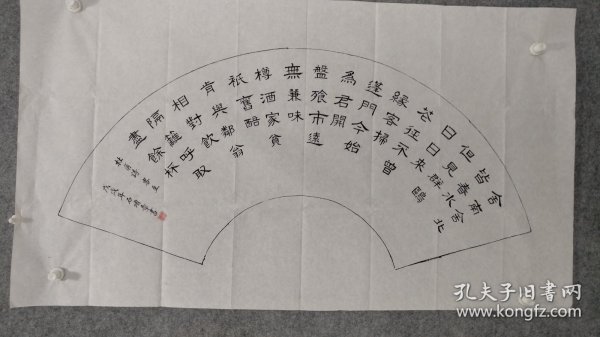 舍南舍北
皆春水
但見群鷗
日日來
花徑不曾
緣客掃
蓬門今始
為君開
盤飧市遠
無兼味
樽酒家貧
祇舊醅
肯與鄰翁
相對飲
隔籬呼取
盡餘杯
杜甫詩客至
戊戌年石書
孔夫子旧书网
www.kongfz.com